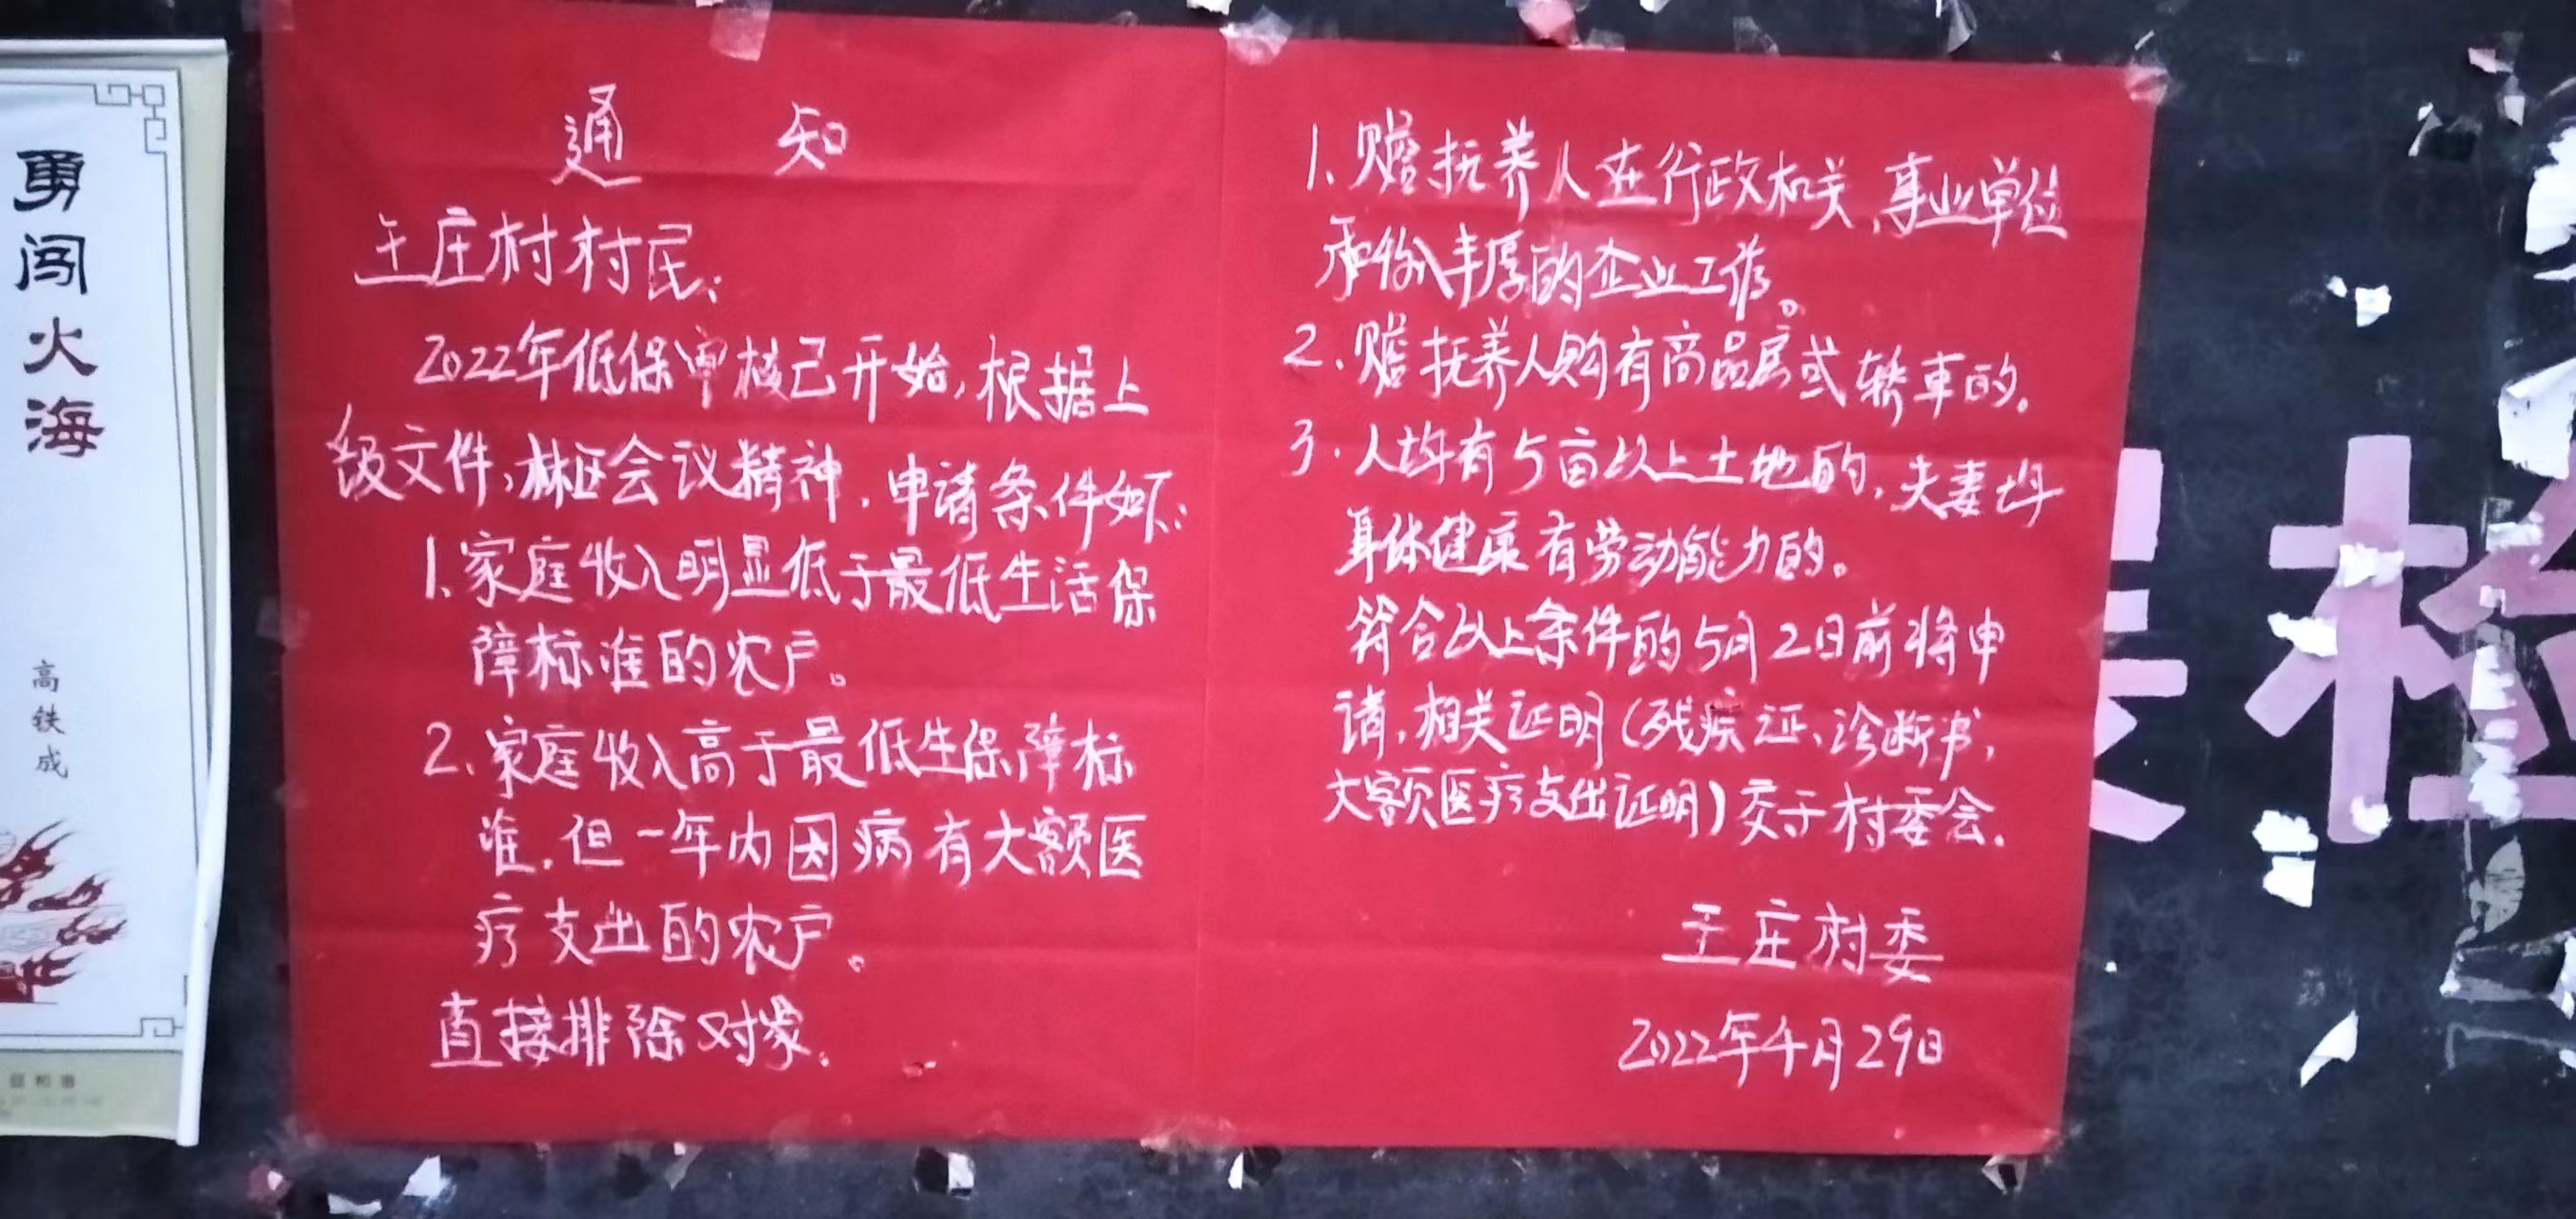 勇闯火海
高铁成
通知
王庄村村民：
2022年低保审核已开始，根据上
级文件，林区会议精神，申请条件如下：
1、家庭收入明显低于最低生活保
障标准的农户。
2、家庭收入高于最低生保障标
准，但一年内因病有大额医
疗支出的农户。
直接排除对象：
1、赡抚养人在行政机关、事业单位
和收入丰厚的企业工作。
2、赡抚养人购有商品房或轿车的。
3、人均有5亩以上土地的，夫妻均
身体健康有劳动能力的。
符合以上条件的5月2日前将申
请，相关证明（残疾证、诊断书，
大额医疗支出证明）交于村委会。
王庄村委
2022年4月29日